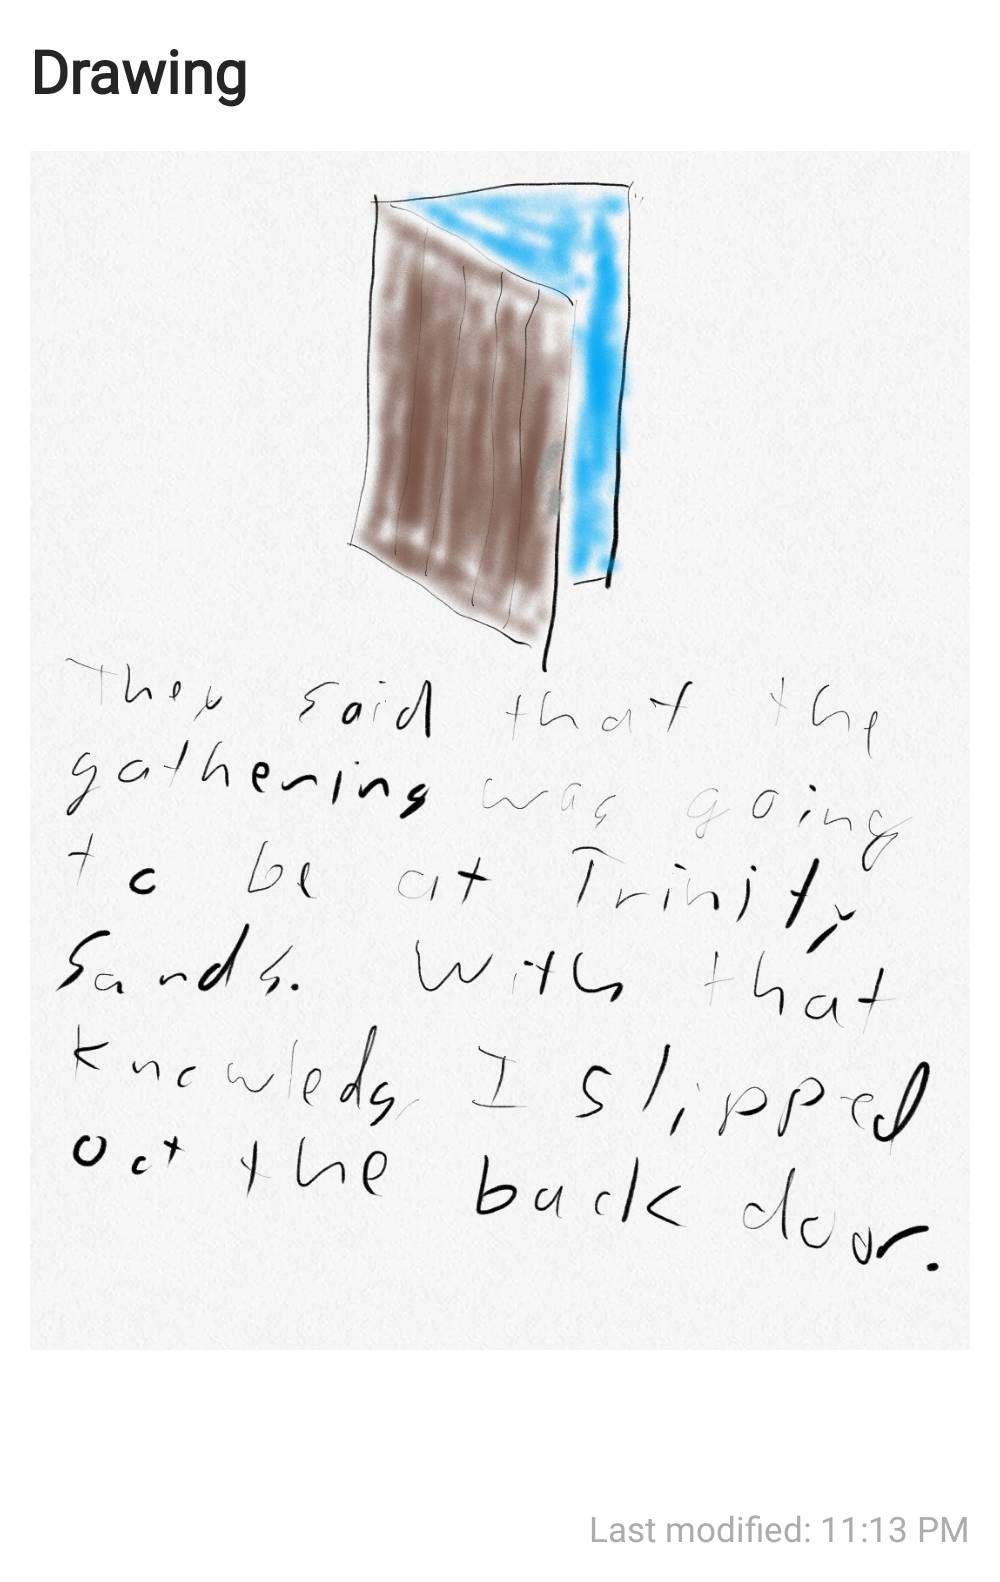 Drawing
They said that the
gathering was going
to be at Trinity
Sands. With that
knowledg I slipped
out the back door.
Last modified: 11:13 PM